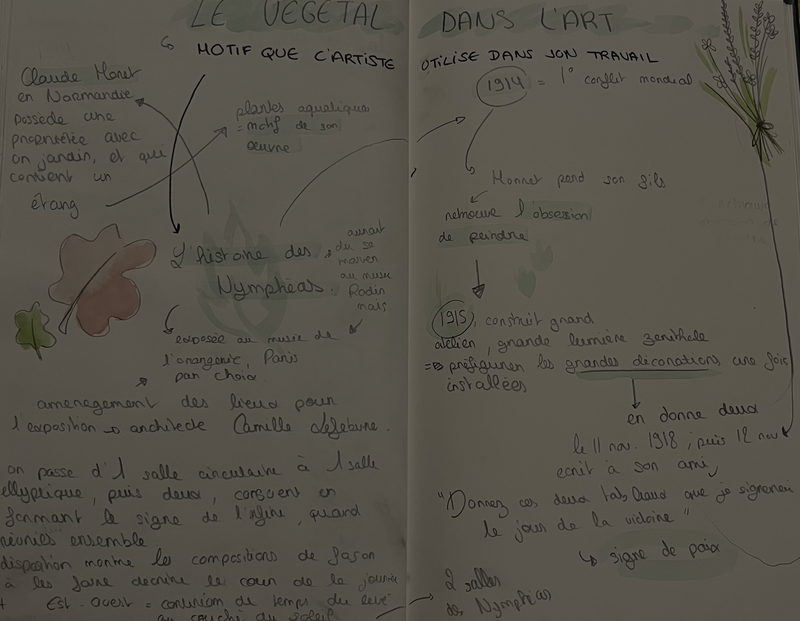 LE VEGETAL DANS L'ART
MOTIF QUE L'ARTISTE UTILISE DANS SON TRAVAIL
Claude Monet
en Normandie
possède une
propriétée avec
un jardin, et qui
contient un
étang
plantes aquatiques
= motif de son
œuvre
L'histoire des
Nymphéas.
aurait
du se
trouver
au musée
Rodin
mais
exposée au musée de
l'orangerie, Paris
par choix.
amenagement des lieux pour
l'exposition → architecte Camille Lefebvre.
on passe d'1 salle circulaire à 1 salle
elliptique, puis deux, conçoient en
formant le signe de l'infini, quand
réunis ensemble
disposition montre les compositions de façon
à les faire decrire le cour de la journée
+ Est-Ouest = du levé
au couché du soleil
1914 = 1° conflit mondial
Monnet perd son fils
retrouve l'obsession
de peindre
1915, construit grand
atelier, grande lumière zenithale
=> préfigurer les grandes décorations une fois
installées
en donne deux
le 11 nov. 1918; puis 12 nov
ecrit à son ami,
"Donnez ces deux tableaux que je signerai
le jour de la victoire"
↳ signe de paix
2 salles
des Nymphéas